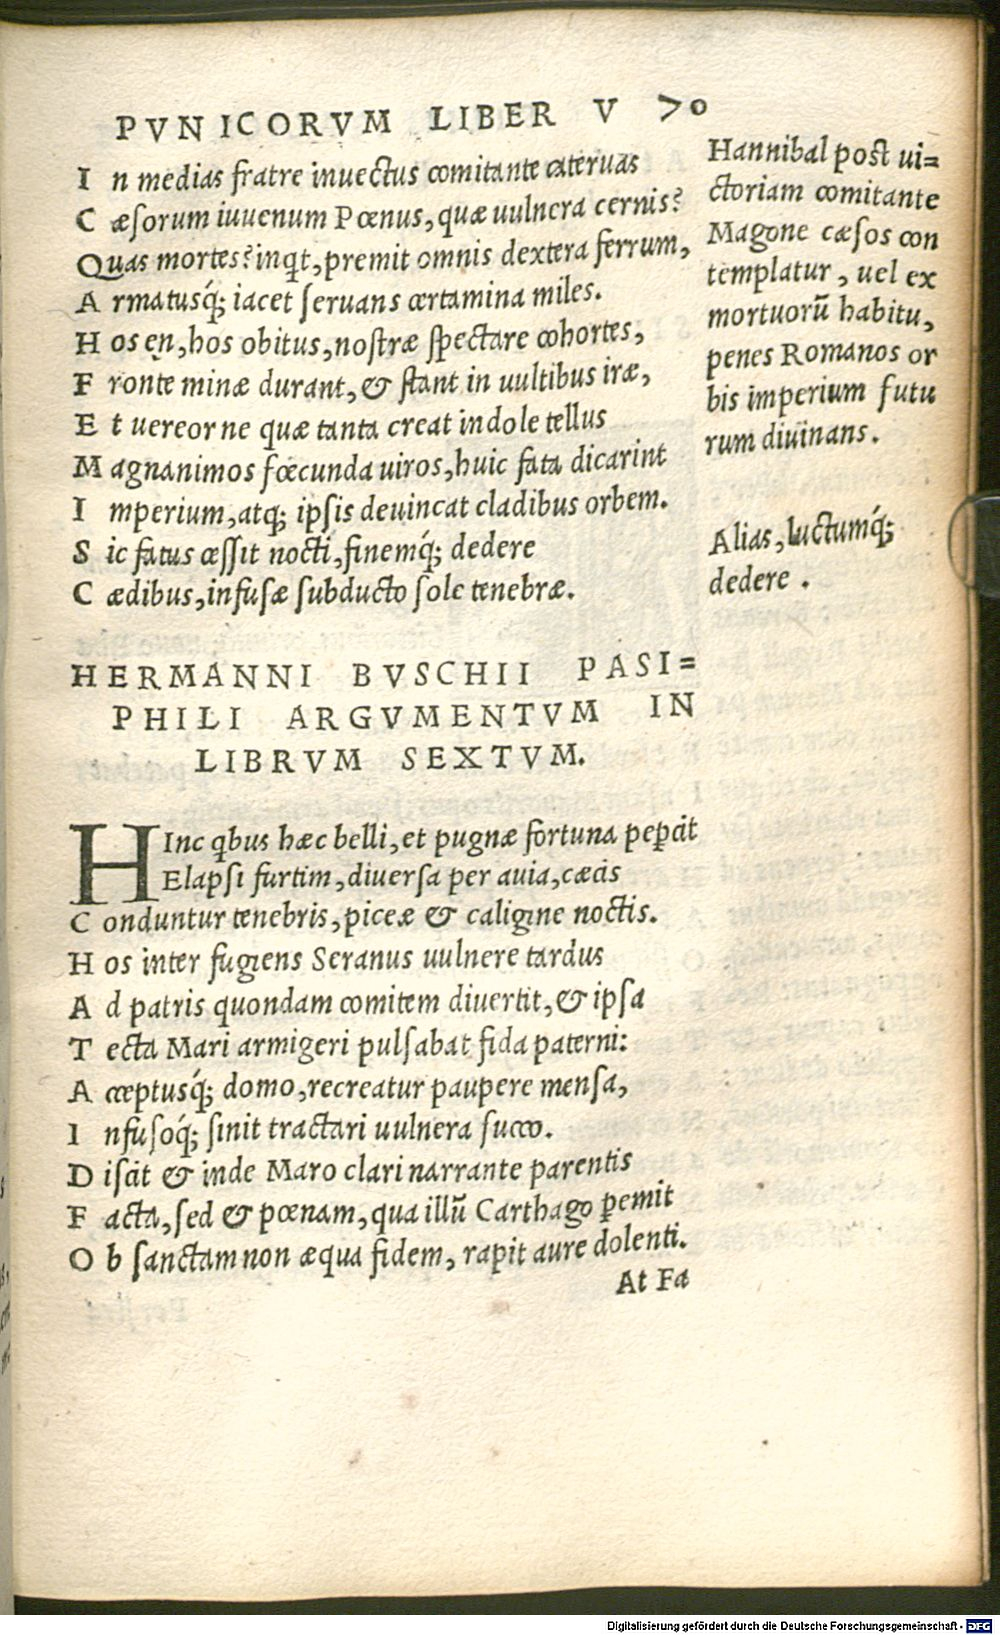 PVNICORVM LIBER V 70
I n medias fratre inuectus comitante cateruas
C æsorum iuuenum Pœnus, quæ uulnera cernis?
Quas mortes? inqt, premit omnis dextera ferrum,
A rmatusq́; iacet seruans certamina miles.
H os en, hos obitus, nostræ spectare cohortes,
F ronte minæ durant, & stant in uultibus iræ,
E t uereor ne quæ tanta creat indole tellus
M agnanimos fœcunda uiros, huic fata dicarint
I mperium, atq; ipsis deuincat cladibus orbem.
S ic fatus cessit nocti, finemq́; dedere
C ædibus, infusæ subducto sole tenebræ.
Hannibal post ui=
ctoriam comitante
Magone cæsos con
templatur, uel ex
mortuorũ habitu,
penes Romanos or
bis imperium futu
rum diuinans.
Alias, luctumq́;
dedere.
HERMANNI BVSCHII PASI=
PHILI ARGVMENTVM IN
LIBRVM SEXTVM.
HInc qbus hæc belli, et pugnæ fortuna pep̱cit
Elapsi furtim, diuersa per auia, cæcis
C onduntur tenebris, piceæ & caligine noctis.
H os inter fugiens Seranus uulnere tardus
A d patris quondam comitem diuertit, & ipsa
T ecta Mari armigeri pulsabat fida paterni:
A cceptusq́; domo, recreatur paupere mensa,
I nfusoq́; sinit tractari uulnera succo.
D iscit & inde Maro clari narrante parentis
F acta, sed & pœnam, qua illũ Carthago p̱emit
O b sanctam non æqua fidem, rapit aure dolenti.
At Fa
Digitalisierung gefördert durch die Deutsche Forschungsgemeinschaft - DFG